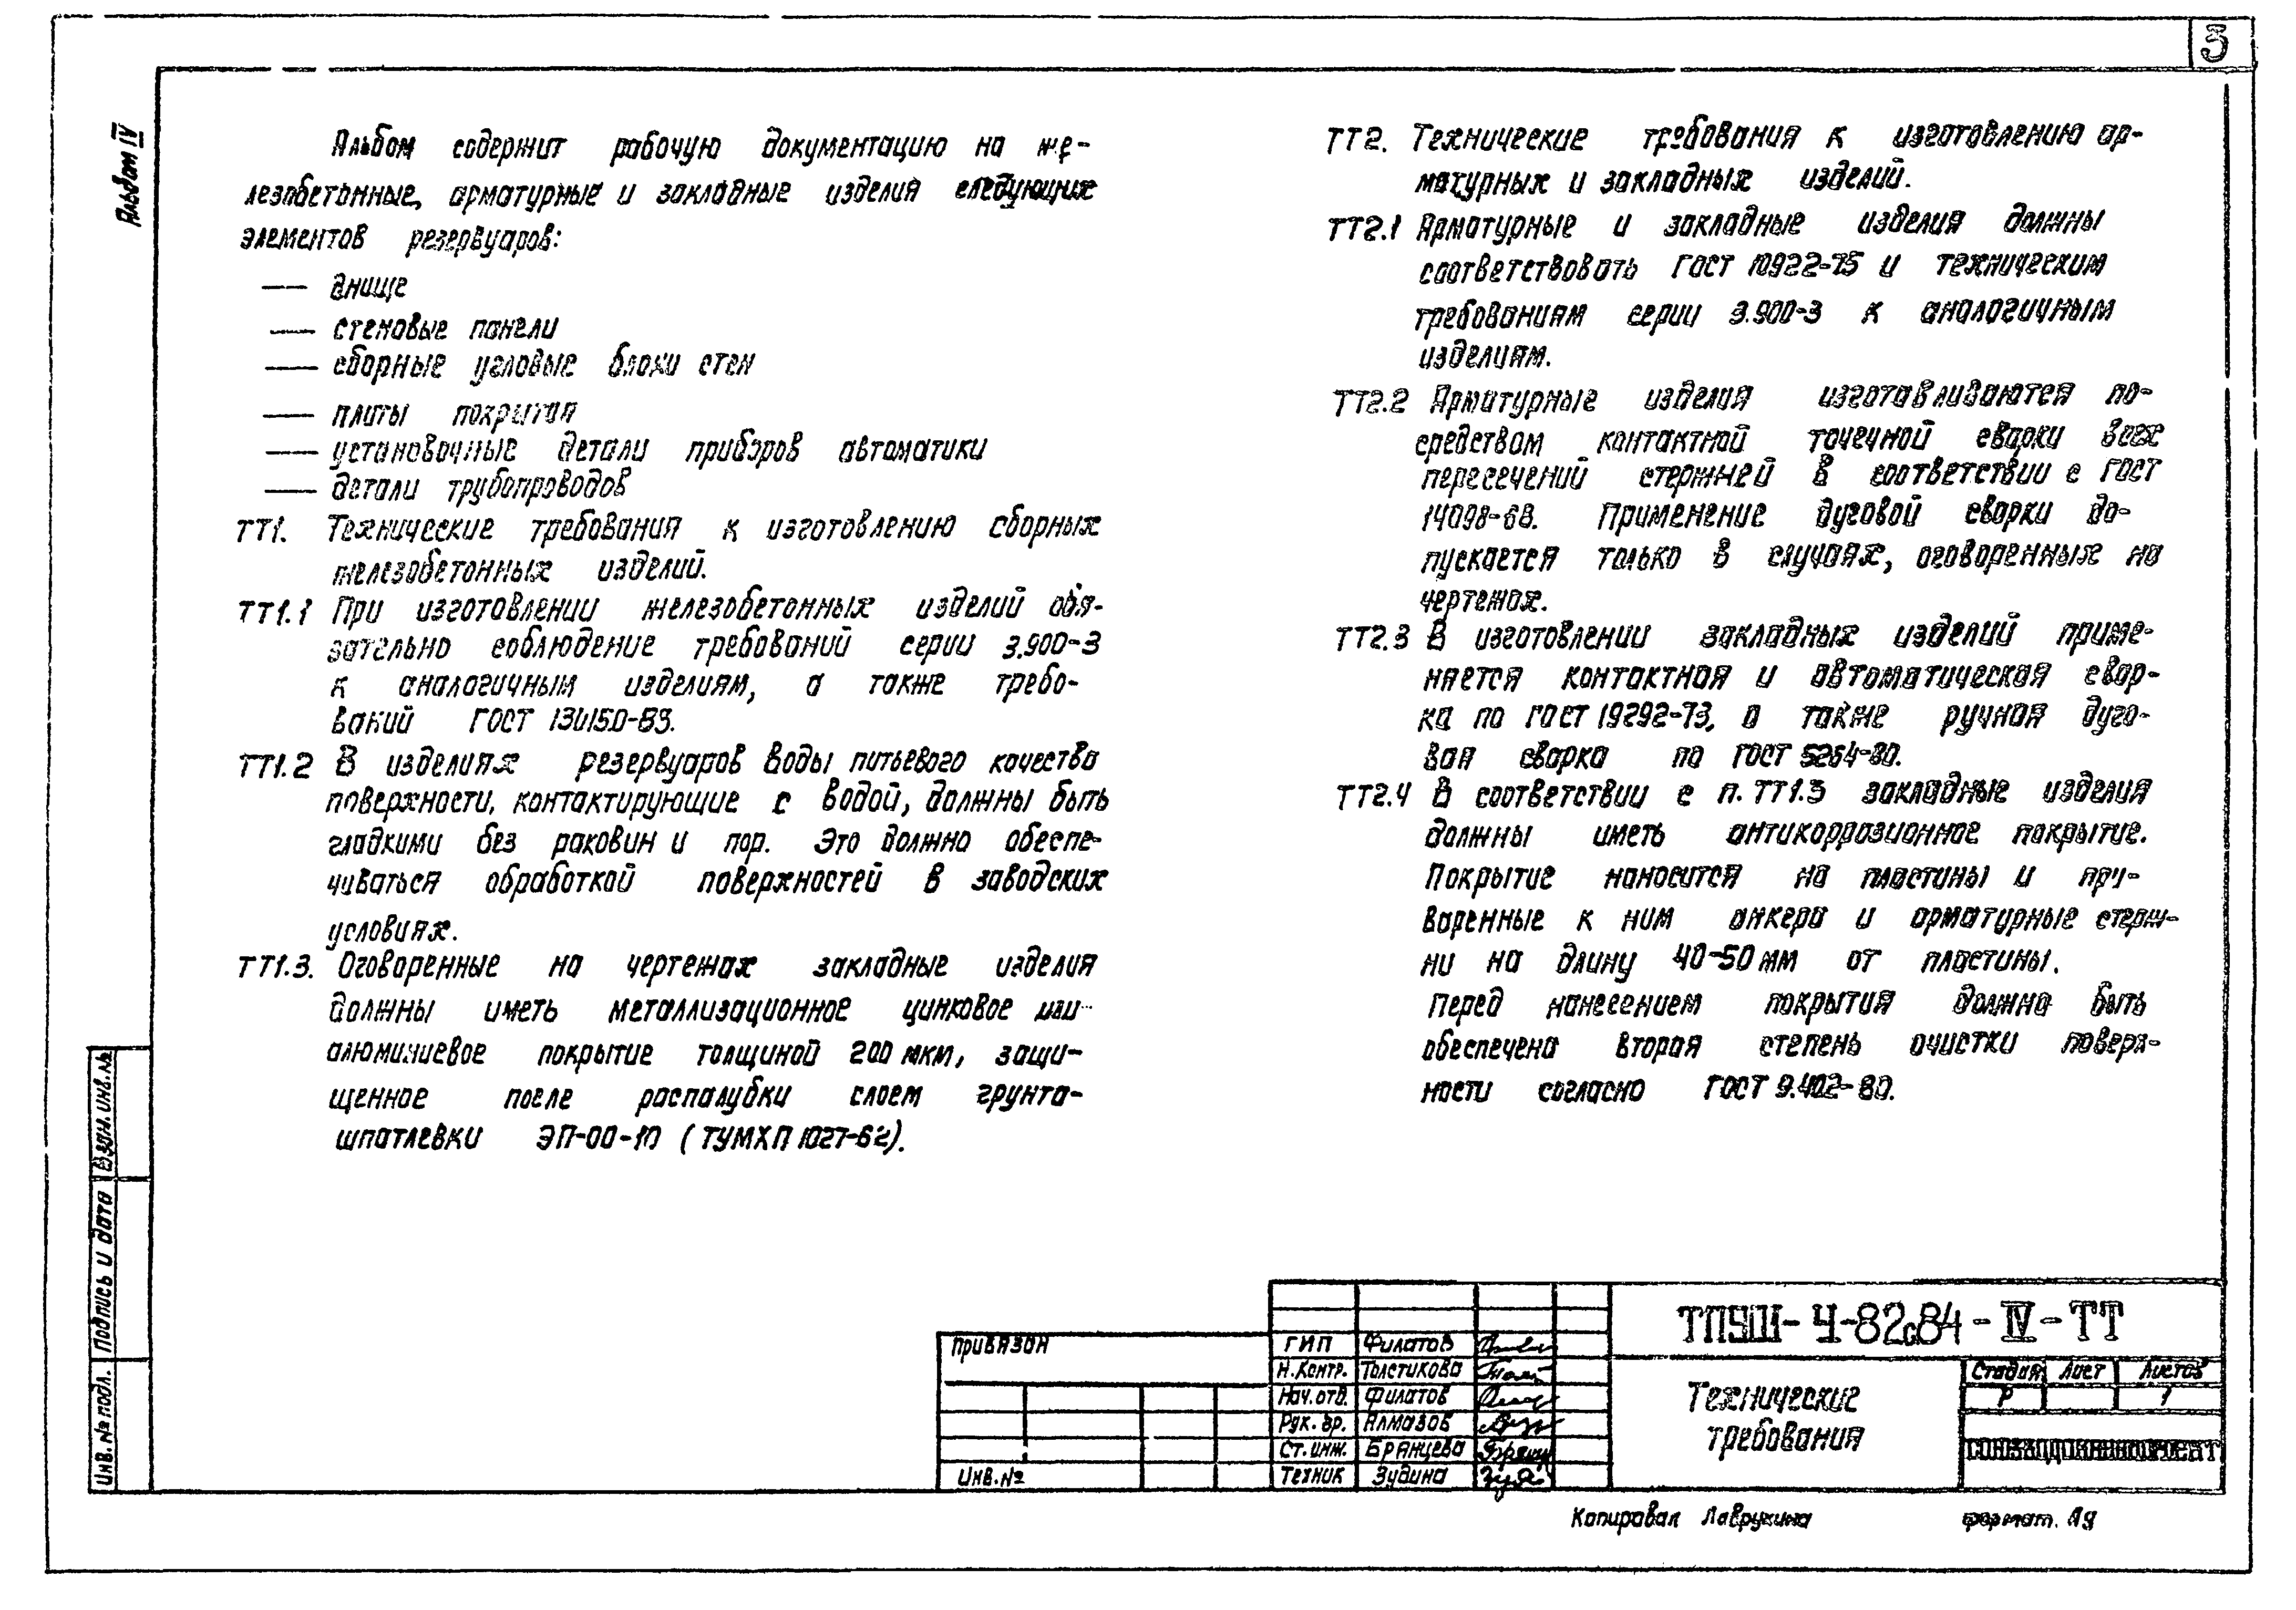 3
Альбом IV
Альбом содержит рабочую документацию на же-
лезобетонные, арматурные и закладные изделия следующих
элементов резервуаров:
— днище
— стеновые панели
— сборные угловые блоки стен
— плиты покрытия
— установочные детали приборов автоматики
— детали трубопроводов
ТТ1. Технические требования к изготовлению сборных
железобетонных изделий.
ТТ1.1 При изготовлении железобетонных изделий обя-
зательно соблюдение требований серии 3.900-3
к аналогичным изделиям, а также требо-
ваний ГОСТ
ТТ1.2 В изделиях резервуаров воды питьевого качества
поверхности, контактирующие с водой, должны быть
гладкими без раковин и пор. Это должно обеспе-
чиваться обработкой поверхностей в заводских
условиях.
ТТ1.3. Оговоренные на чертежах закладные изделия
должны иметь металлизационное цинковое или
алюминиевое покрытие толщиной 200 мкм, защи-
щенное после распалубки слоем грунта-
шпатлевки ЭП-00-10 (ТУМХП 1027-62).
ТТ2. Технические требования к изготовлению ар-
матурных и закладных изделий.
ТТ2.1 Арматурные и закладные изделия должны
соответствовать ГОСТ 10922-75 и техническим
требованиям серии 3.900-3 к аналогичным
изделиям.
ТТ2.2 Арматурные изделия изготавливаются по-
средством контактной точечной сварки всех
пересечений стержней в соответствии с ГОСТ
14098-68. Применение дуговой сварки до-
пускается только в случаях, оговоренных на
чертежах.
ТТ2.3 В изготовлении закладных изделий приме-
няется контактная и автоматическая свар-
ка по ГОСТ 19292-73, а также ручная дуго-
вая сварка по ГОСТ 5264-80.
ТТ2.4 В соответствии с п. ТТ1.3 закладные изделия
должны иметь антикоррозионное покрытие.
Покрытие наносится на пластины и при-
варенные к ним анкера и арматурные стерж-
ни на длину 40-50 мм от пластины.
Перед нанесением покрытия должна быть
обеспечена вторая степень очистки поверх-
ности согласно ГОСТ 9.402-80.
Инв. № подл. Подпись и дата Взам. инв. №
Привязан
Инв. №
ГИП Филатов
Н. Контр. Толстикова
Нач. отд. Филатов
Рук. бр. Алмазов
Ст. инж. Брянцева
Техник Зудина
ТПУШ-4-82с84-IV-ТТ
Технические
требования
Стадия Лист Листов
Р 1
Копировал Лаврухина формат.